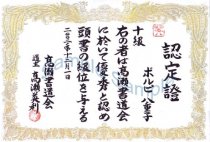 認定證
ボルビ 八重子
十級
右の者は高瀬書道会
に於いて優秀と認め
頭書の級位を与える
二〇一〇年十二月一日
高瀬書道会
高瀬美利